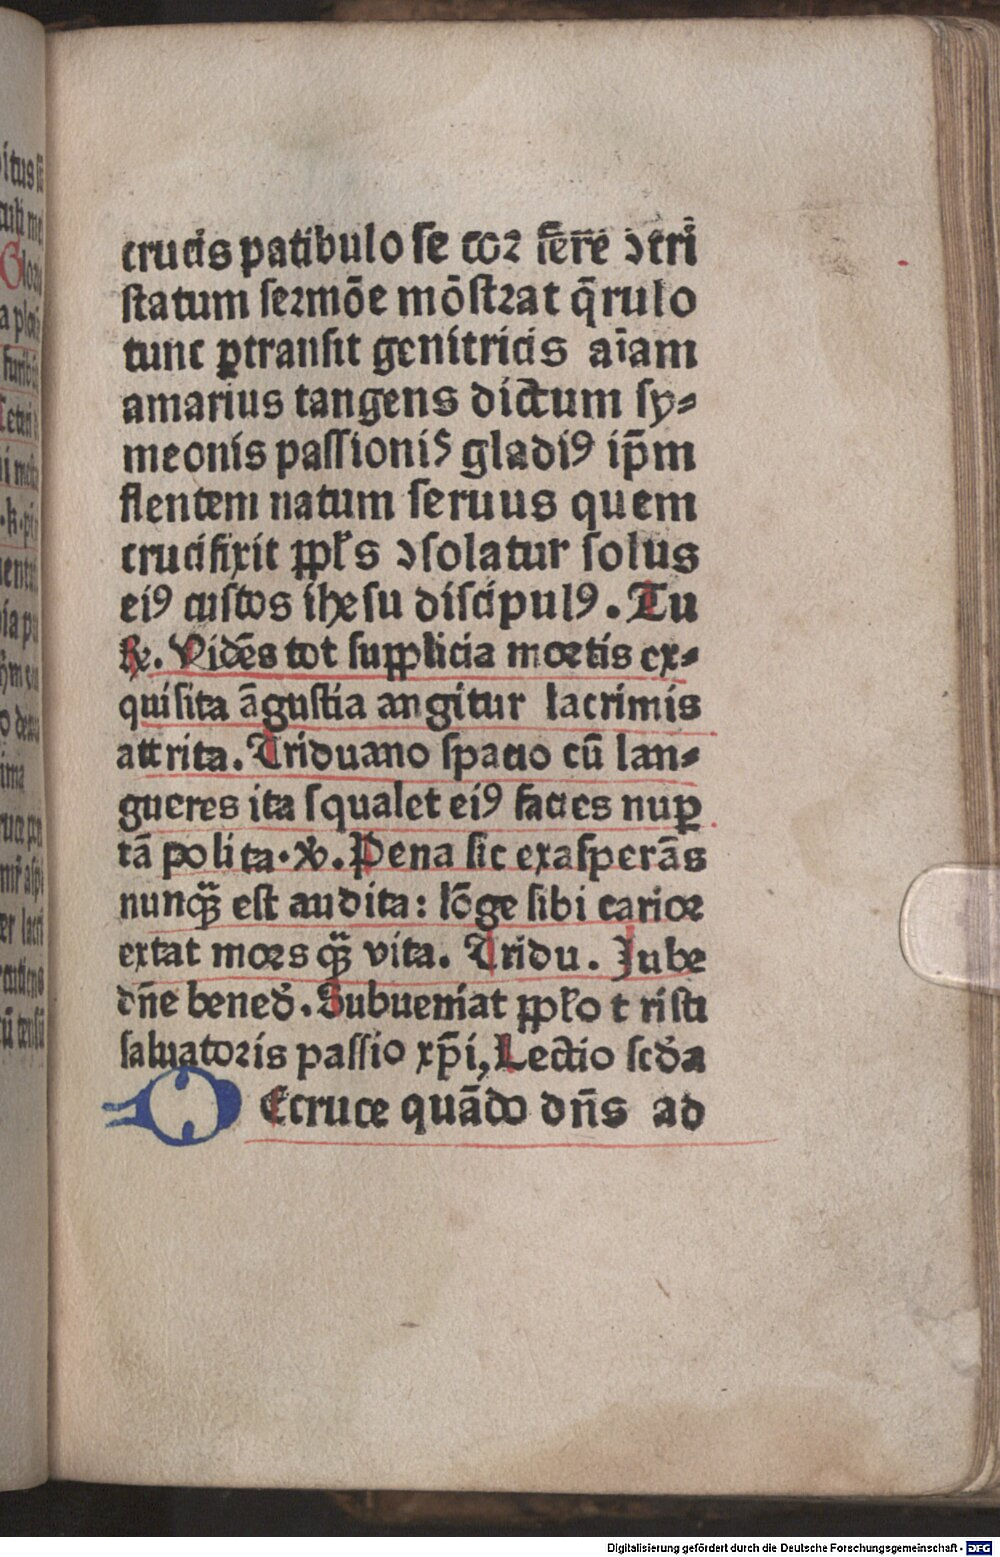 crucis patibulo se coꝛ fe̅re̅ ↄtri
statum seꝛmo̅e mo̅stꝛat q̅rulo
tunc ꝑtransit genitricis ai̅am
amarius tangens dictum sy⸗
meonis passionis gladiꝰ ip̅m
flentem natum seruus quem
crucifixit ppl̅s ↄsolatur solus
eiꝰ custos ihesu discipulꝰ. Tu
℟. Vide̅s tot supplicia moꝛtis ex⸗
quisita a̅gustia angitur lacrimis
attrita. Triduano spacio cu̅ lan⸗
gueres ita squalet eiꝰ facies nuꝑ
ta̅ polita. ℣. Pena sic exaspera̅s
nunqꝫ̅ est audita: lo̅ge sibi carioꝛ
extat moꝛs qꝫ̅ vita. Tridu. Jube
dn̅e bened̅. Subueniat ppl̅o tristi
saluatoꝛis passio xp̅i, Lectio scd̅a
DEcruce qua̅do dn̅s ad
Digitalisierung gefördert durch die Deutsche Forschungsgemeinschaft - DFG